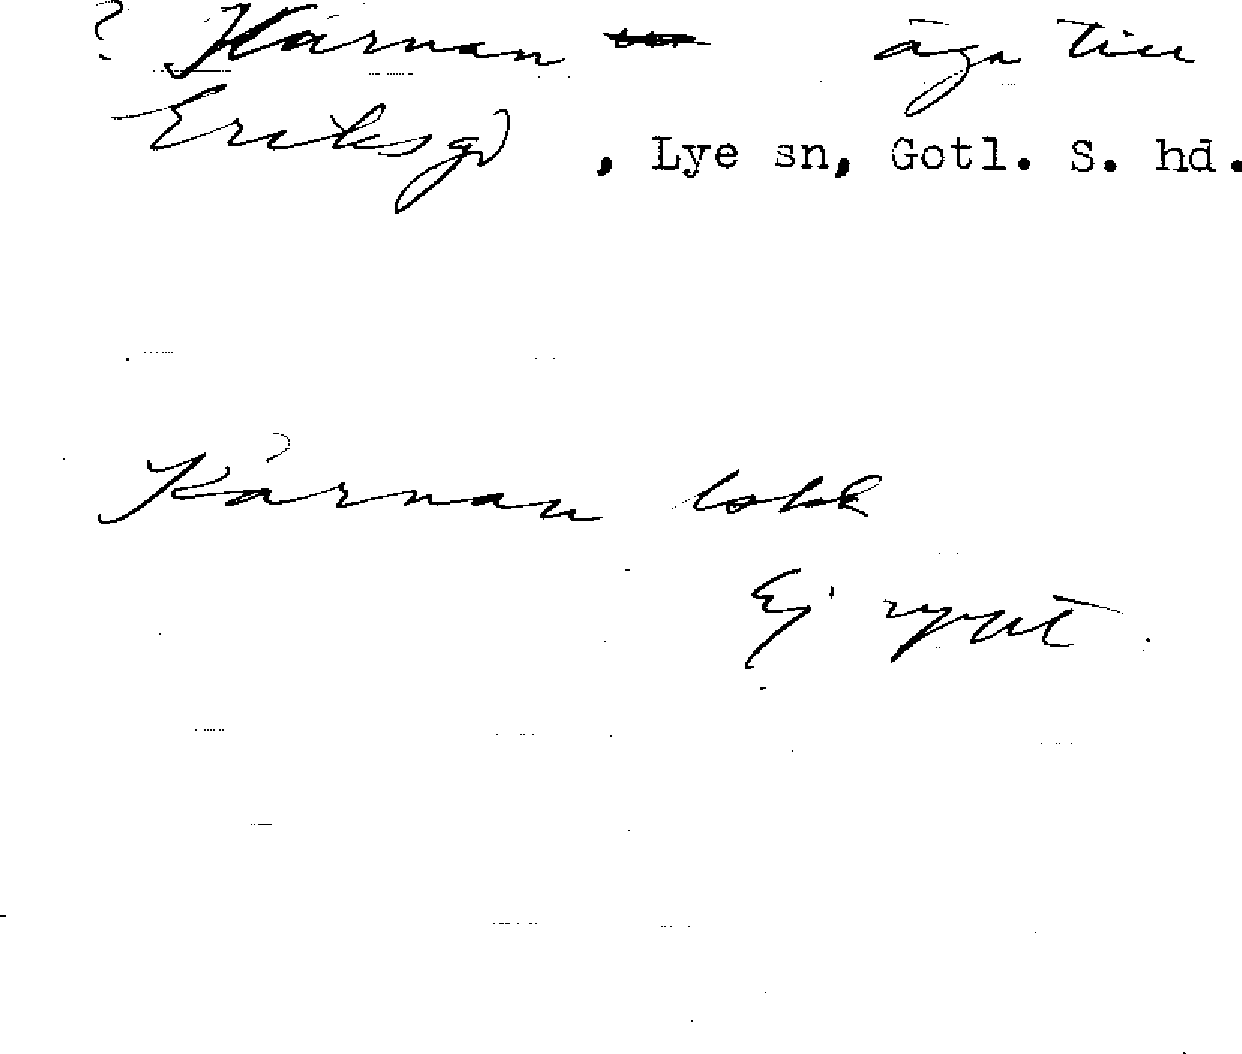 ? Kärnan äga till
Eriksgd , Lye sn, Gotl. S. hd.
Kärnan lokk
Ej syat .